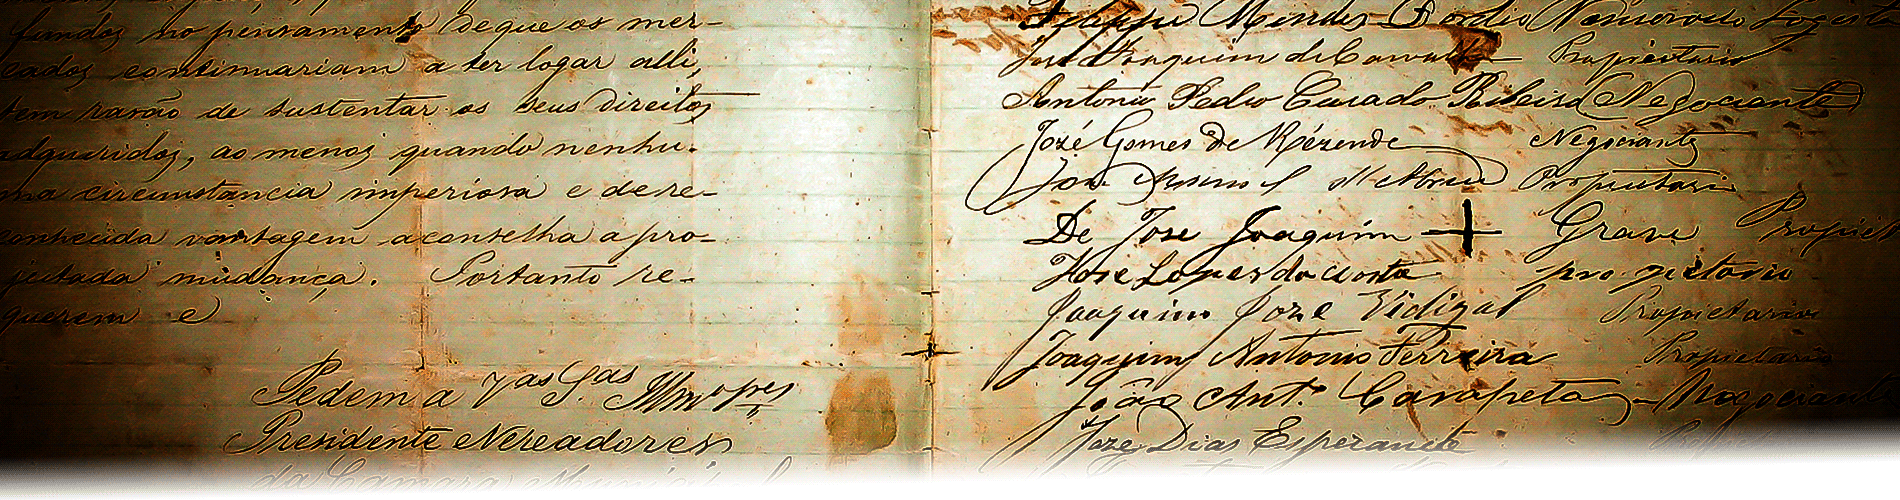 fundos no pensamento de que os mer-
cados continuariam a ter logar alli,
tem razão de sustentar os seus direitos
adqueridos, ao menos quando nenhu-
ma circumstancia imperiosa e de re-
conhecida vantagem aconselha a pro-
jectada mudança. Portanto re-
querem e
Pedem a Vas Sas Illmos
Presidente e Vereadores
da Camara Municipal
Filippe Mendes
José Joaquim de Proprietario
Antonio Pedro Curado Ribeiro Negociante
Jozé Gomes de Rézende Negociante
d'Abreu Proprietario
De Jose Joaquim + Grave Propriet
Jose Lopes da Costa proprietario
Joaquim Joze Vidigal Proprietario
Joaquim Antonio Ferreira Proprietario
João Ant.º Carapeta Negociante
Joze Dias Esperança